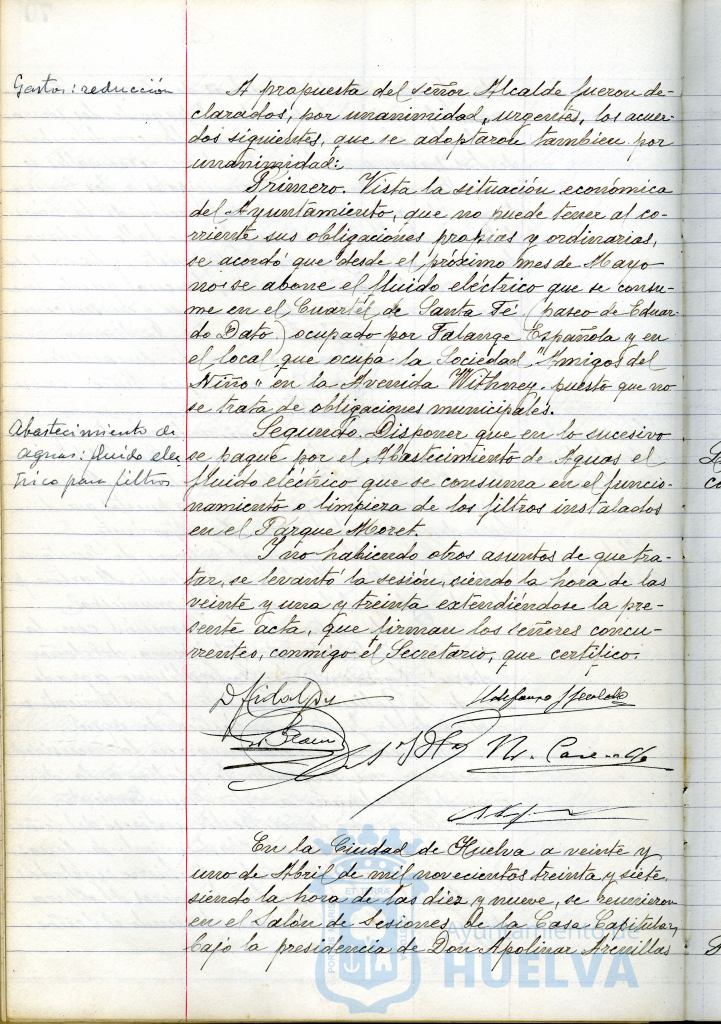 Gastos: reducción
A propuesta del señor Alcalde fueron de-
clarados, por unanimidad, urgentes, los acuer-
dos siguientes, que se adoptaron tambien por
unanimidad:
Primero. Vista la situación económica
del Ayuntamiento, que no puede tener al co-
rriente sus obligaciones propias y ordinarias,
se acordó que desde el próximo mes de Mayo
no se abone el fluido eléctrico que se consu-
me en el Cuartel de Santa Fé (paseo de Eduar-
do Dato) ocupado por Falange Española y en
el local que ocupa la Sociedad "Amigos del
Niño" en la Avenida Withney. puesto que no
se trata de obligaciones municipales.
Abastecimiento de
aguas: fluido eléc-
trico para filtros
Segundo. Disponer que en lo sucesivo
se pague por el Abastecimiento de Aguas el
fluido eléctrico que se consuma en el funcio-
namiento o limpieza de los filtros instalados
en el Parque Moret.
Y no habiendo otros asuntos de que tra-
tar, se levantó la sesión, siendo la hora de las
veinte y una y treinta extendiéndose la pre-
sente acta, que firman los señores concu-
rrentes, conmigo el Secretario, que certifico.
En la Ciudad de Huelva a veinte y
uno de Abril de mil novecientos treinta y siete
siendo la hora de las diez y nueve, se reunieron
en el Salón de Sesiones de la Casa Capitular,
bajo la presidencia de Don Apolinar Arenillas
Ayuntamiento de
HUELVA